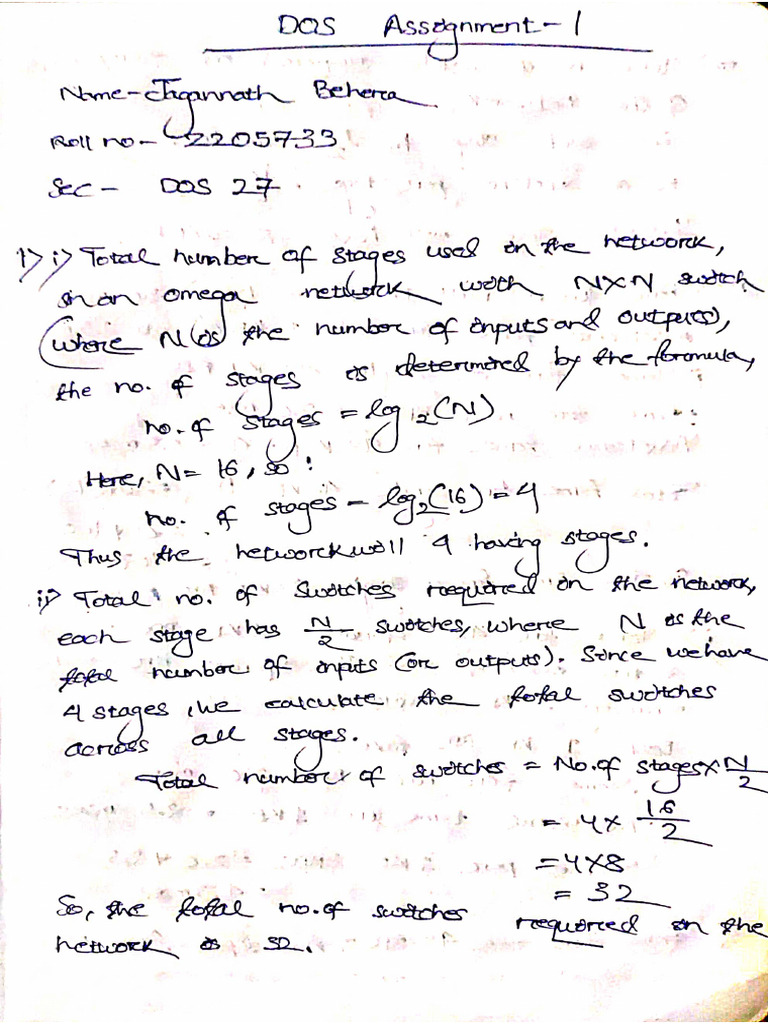 DOS Assignment - 1
Name - Jagannath Behera
Roll no - 2205733
Sec - DOS 27
1> i> Total number of stages used in the network,
in an omega network with N×N switch
(where N(is the number of inputs and outputs),
the no. of stages is determined by the formula,
no. of stages = log₂(N)
Here, N = 16, so :
no. of stages - log₂(16) = 4
Thus the network will 4 having stages.
ii> Total no. of switches required in the network,
each stage has N/2 switches, where N is the
total number of inputs (or outputs). Since we have
4 stages, we calculate the total switches
across all stages.
Total number of switches = No. of stages × N/2
= 4 × 16/2
= 4×8
= 32
So, the total no. of switches required in the
network is 32.